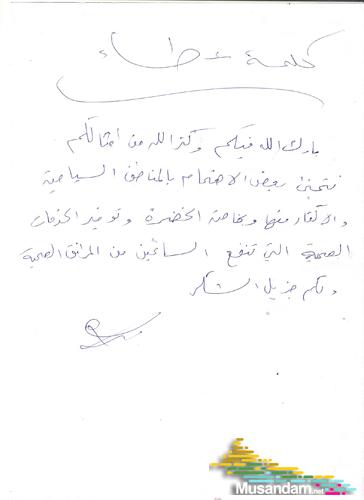 كلمة عطاء
بارك الله فيكم وكثر الله من أمثالكم
نتمنى بعض الاهتمام بالمناطق السياحية
والاكثار منها وبخاصة الخضرة وتوفير الخدمات
الصحية التي تنفع السائحين من المرافق الصحية
ولكم جزيل الشكر
Musandam.net